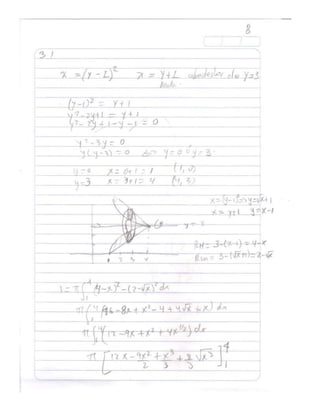 8
31
x = (y-1)² x = y+1 alrededor de y=3
(y-1)² = y+1
y²-2y+1 = y+1
y²-2y+1-y-1 = 0
y²-3y=0
y(y-3)=0 y=0 y=3
y=0 x=0+1=1 (1,0)
y=3 x=3+1=4 (4,3)
x=(y-1)² => y=√x+1
x=y+1 y=x-1
1 2 3 4
RM= 3-(x-1) = 4-x
Rm= 3-(√x+1)=2-√x
π∫(4-x)²-(2-√x)²dx
π∫(16-8x+x²-4+4√x+x) dx
π∫(12-9x+x²+4x^1/2) dx
π[12x-9x²/2+x³/3+8/3√x³]⁴₁